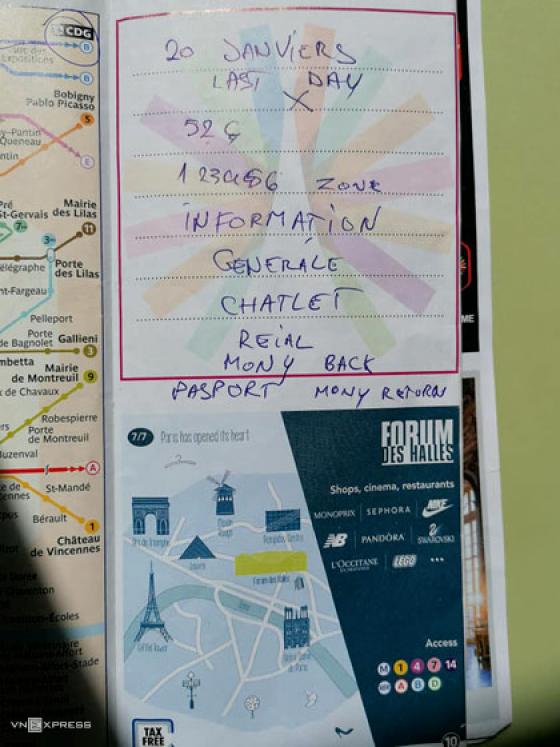 CDG
B
B
Bobigny
Pablo Picasso
5
Queneau
E
Mairie
des Lilas
11
Porte
des Lilas
Télégraphe
Pelleport
Porte
de Bagnolet
Gallieni
3
Mairie
de Montreuil
9
x de Chavaux
Robespierre
Porte
de Montreuil
Buzenval
A
St-Mandé
Bérault
1
Château
de Vincennes
20 JANVIERS
LAST DAY
X
52 €
123456 ZONE
INFORMATION
GENERALE
CHATLET
REIAL
MONY BACK
PASPORT MONY RETURN
7/7 Paris has opened its heart
FORUM
DES HALLES
Shops, cinema, restaurants
MONOPRIX SEPHORA NIKE
NB PANDÖRA SWAROVSKI
L'OCCITANE LEGO ...
Arc de Triomphe
Moulin
Rouge
Pompidou Centre
Louvre
Forum des Halles
Eiffel Tower
Notre Dame
de Paris
Access
M 1 4 7 14
RER A B D
TAX
FREE
10
ME
VNEXPRESS